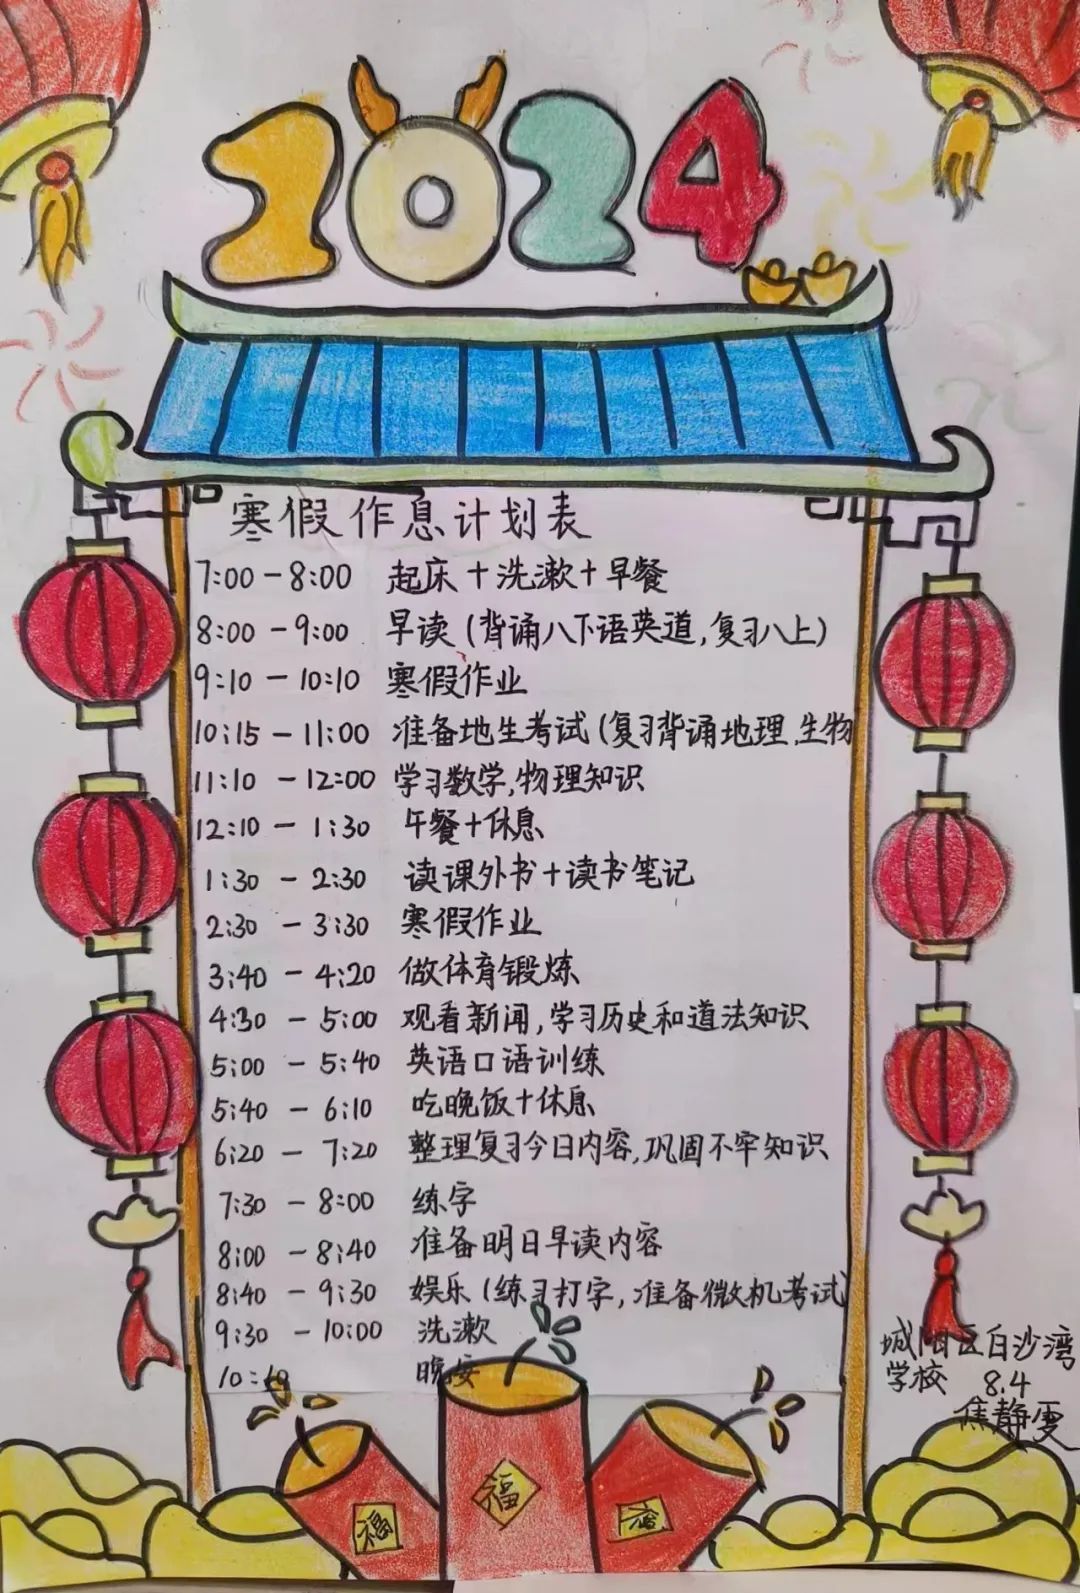 2024
寒假作息计划表
7:00-8:00 起床+洗漱+早餐
8:00-9:00 早读(背诵八下语英道,复习八上)
9:10-10:10 寒假作业
10:15-11:00 准备地生考试(复习背诵地理.生物
11:10-12:00 学习数学,物理知识
12:10-1:30 午餐+休息
1:30-2:30 读课外书+读书笔记
2:30-3:30 寒假作业
3:40-4:20 做体育锻炼
4:30-5:00 观看新闻,学习历史和道法知识
5:00-5:40 英语口语训练
5:40-6:10 吃晚饭+休息
6:20-7:20 整理复习今日内容,巩固不牢知识
7:30-8:00 练字
8:00-8:40 准备明日早读内容
8:40-9:30 娱乐(练习打字,准备微机考试)
9:30-10:00 洗漱
10:10 晚安
城阳区白沙湾
学校 8.4
焦静雯
福
福
福